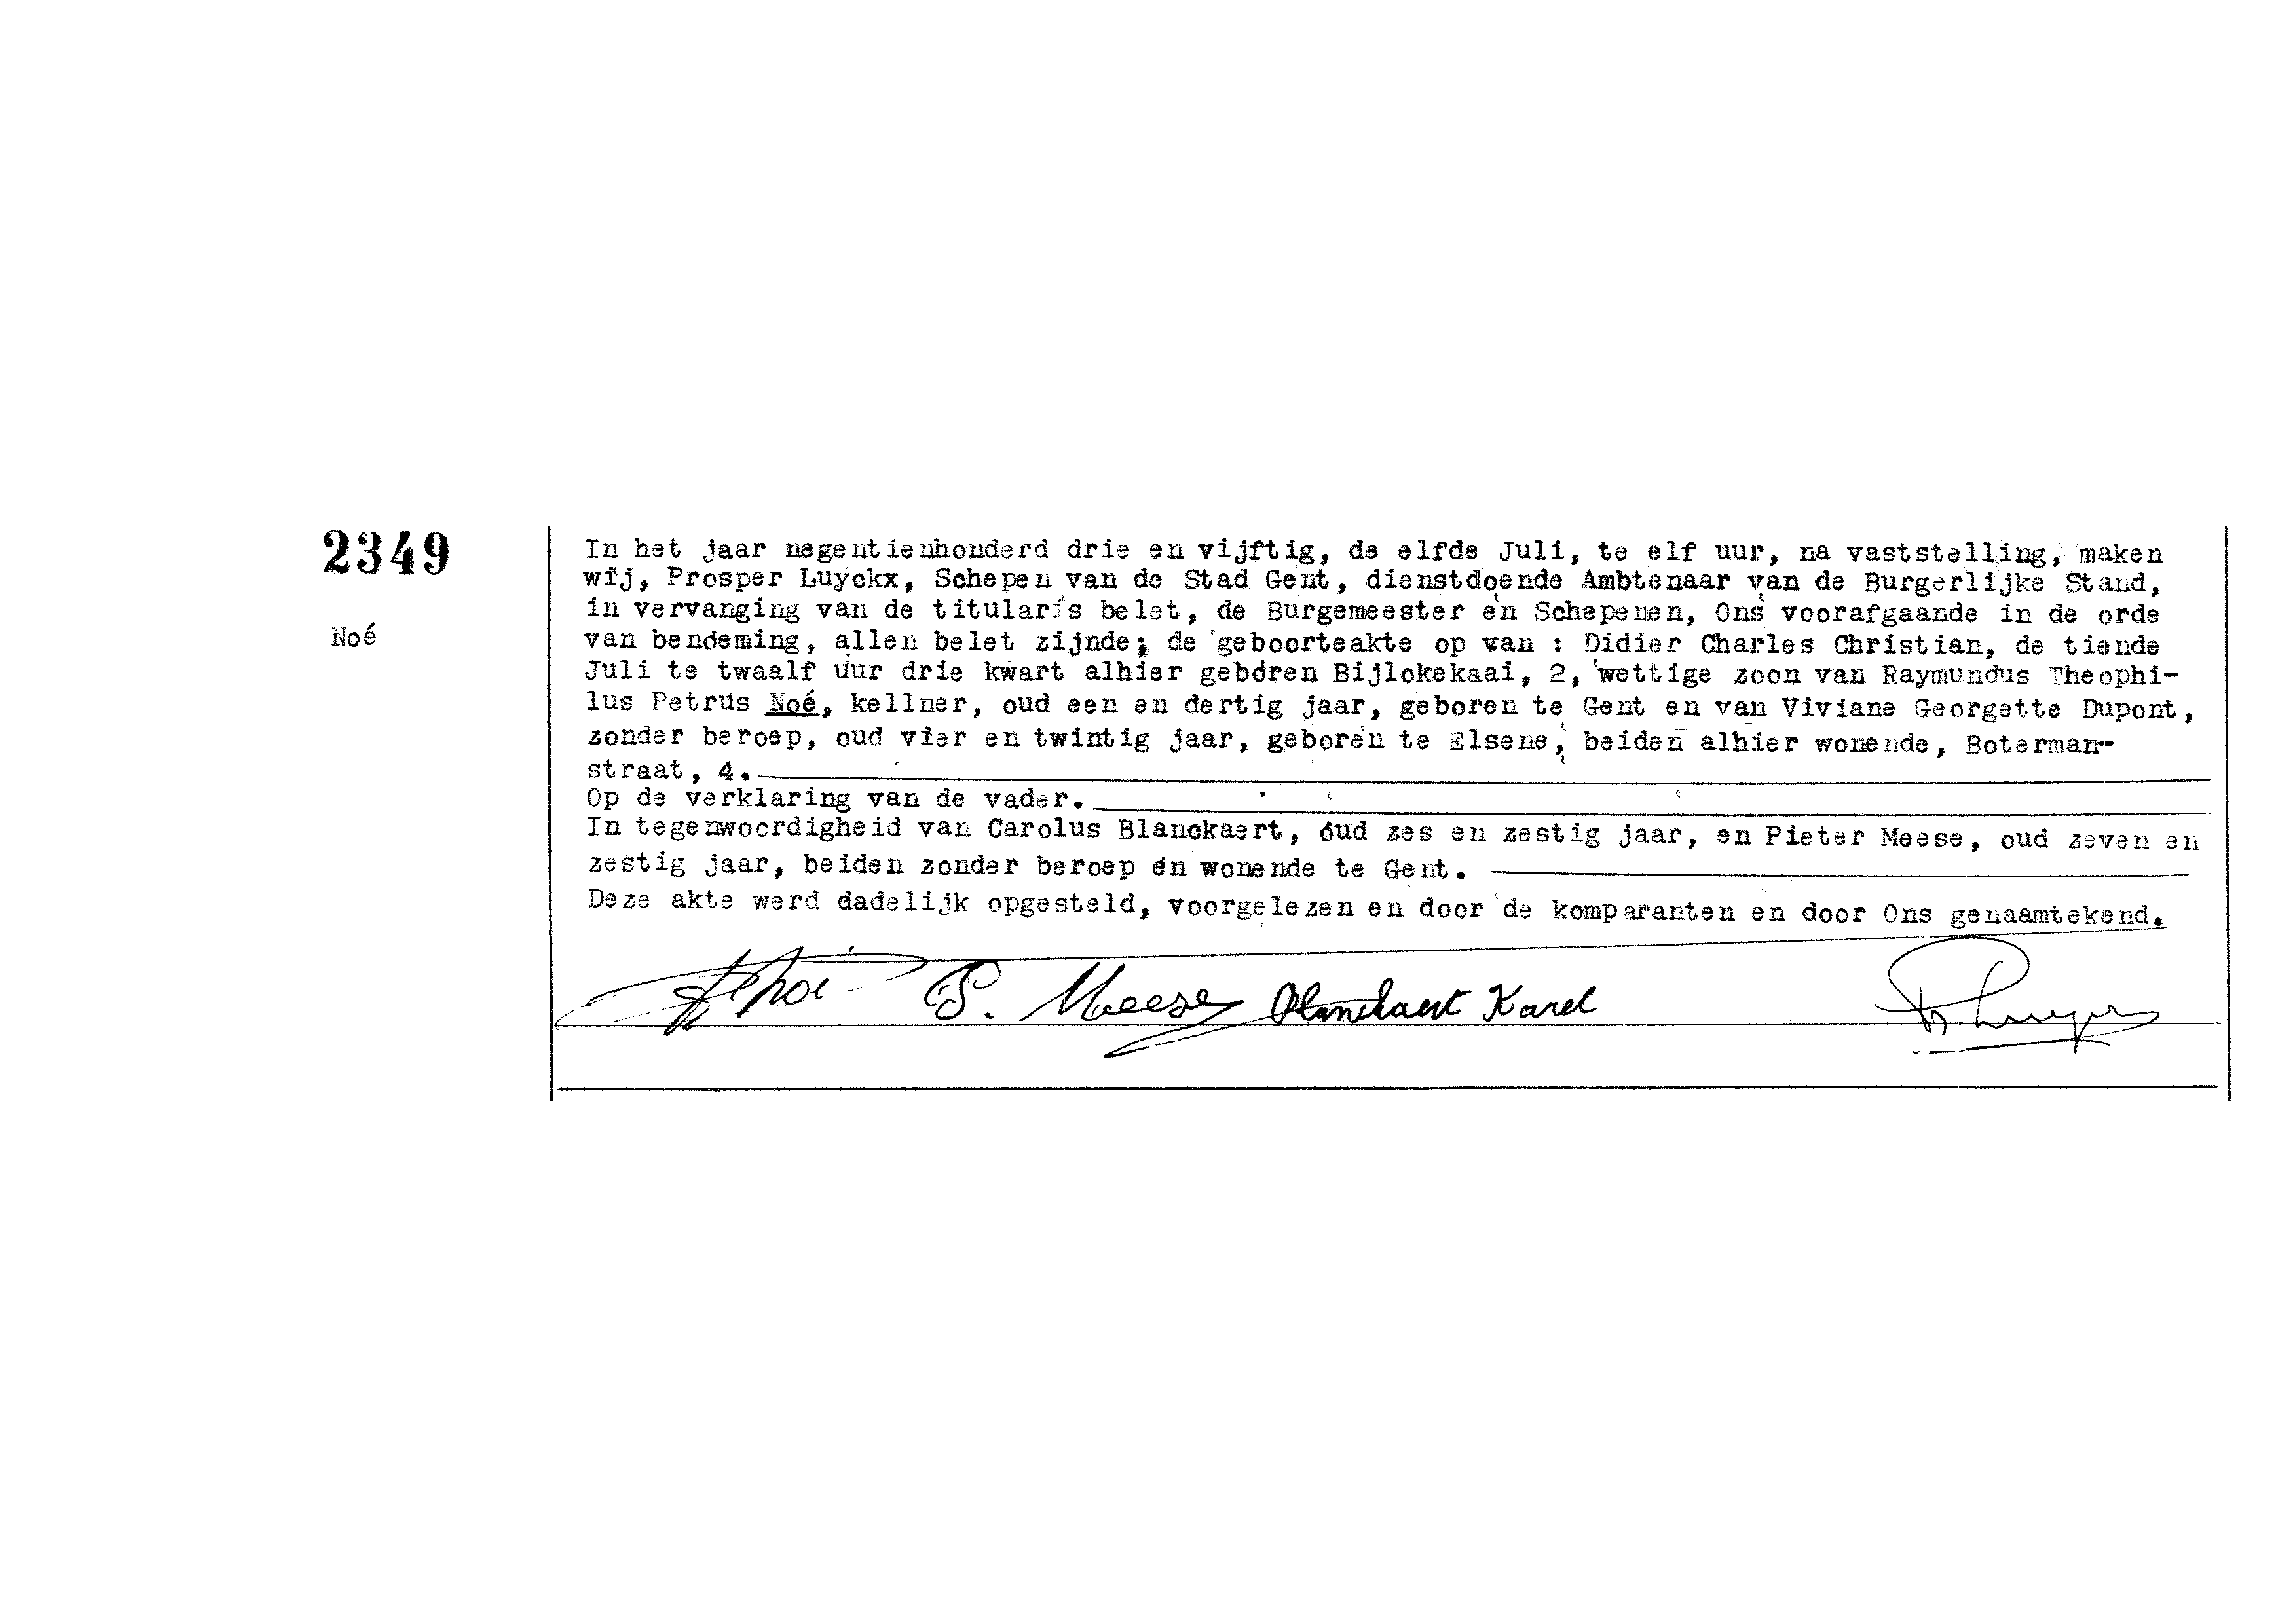 2349
Noé
In het jaar negentienhonderd drie en vijftig, de elfde Juli, te elf uur, na vaststelling, maken
wij, Prosper Luyckx, Schepen van de Stad Gent, dienstdoende Ambtenaar van de Burgerlijke Stand,
in vervanging van de titularis belet, de Burgemeester en Schepenen, Ons voorafgaande in de orde
van benoeming, allen belet zijnde; de geboorteakte op van : Didier Charles Christian, de tiende
Juli te twaalf uur drie kwart alhier geboren Bijlokekaai, 2, wettige zoon van Raymundus Theophi-
lus Petrus Noé, kellner, oud een en dertig jaar, geboren te Gent en van Viviane Georgette Dupont,
zonder beroep, oud vier en twintig jaar, geboren te Elsene, beiden alhier wonende, Boterman-
straat, 4.
Op de verklaring van de vader.
In tegenwoordigheid van Carolus Blanckaert, oud zes en zestig jaar, en Pieter Meese, oud zeven en
zestig jaar, beiden zonder beroep en wonende te Gent.
Deze akte werd dadelijk opgesteld, voorgelezen en door de komparanten en door Ons genaamtekend.
P. Meese Blanckaert Karel